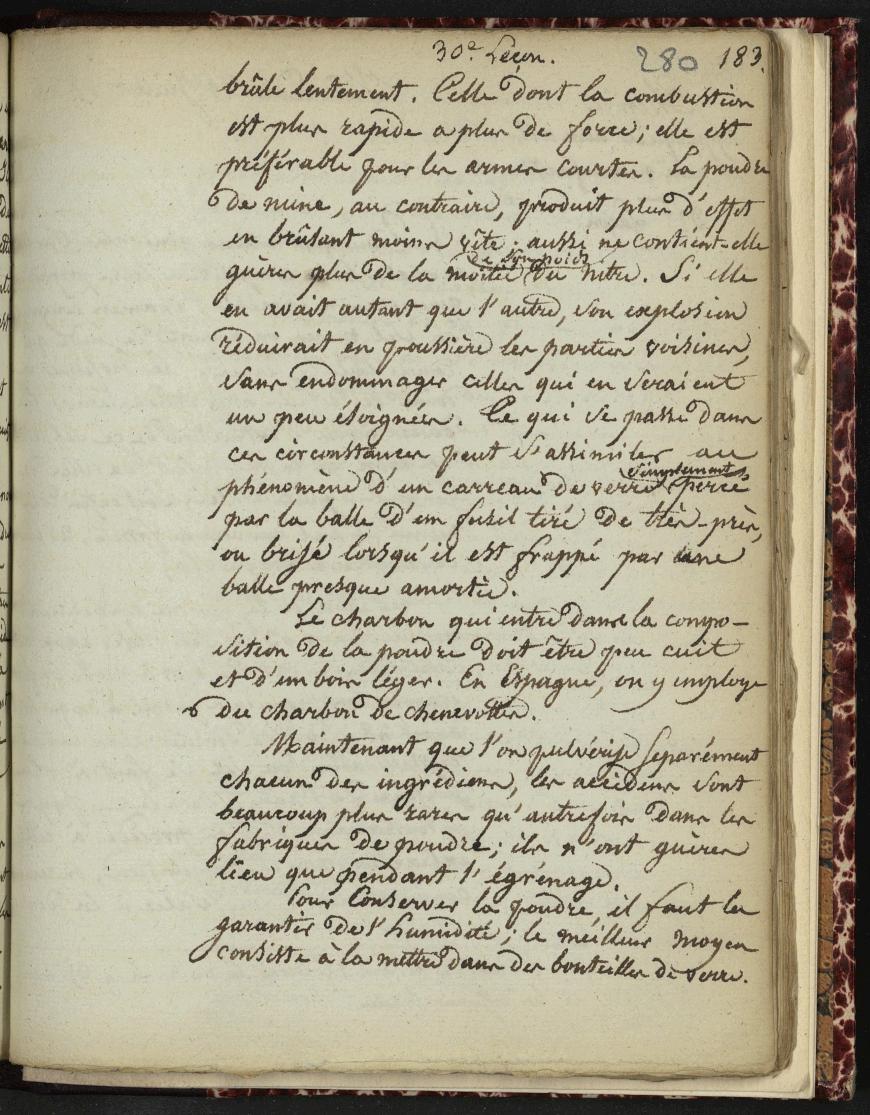 30e Leçon. 280 183.
brûle lentement. Celle dont la combustion
est plus rapide a plus de force; elle est
préférable pour les armes courtes. La poudre
de mine, au contraire, produit plus d'effet
en brûlant moins vîte; aussi ne contient-elle
de son poids
guères plus de la moitié de nitre. Si elle
en avait autant que l'autre, son explosion
réduirait en poussière les parties voisines,
sans endommager celles qui en seraient
un peu éloignées. Ce qui se passe dans
ces circonstances peut s'assimiler au
simplement
phénomène d'un carreau de verre percé
par la balle d'un fusil tiré de très-près,
ou brisé lorsqu'il est frappé par une
balle presque amortie.
Le charbon qui entre dans la compo-
sition de la poudre doit être peu cuit
et d'un bois léger. En Espagne, on y employe
du charbon de chenevottes.
Maintenant que l'on pulvérise separément
chacun des ingrédiens, les accidens sont
beaucoup plus rares qu'autrefois dans les
fabriques de poudre; ils n'ont guères
lieu que pendant l'égrénage.
Pour Conserver la poudre, il faut la
garantir de l'humidité; le meilleur moyen
consiste à la mettre dans des bouteilles de verre.